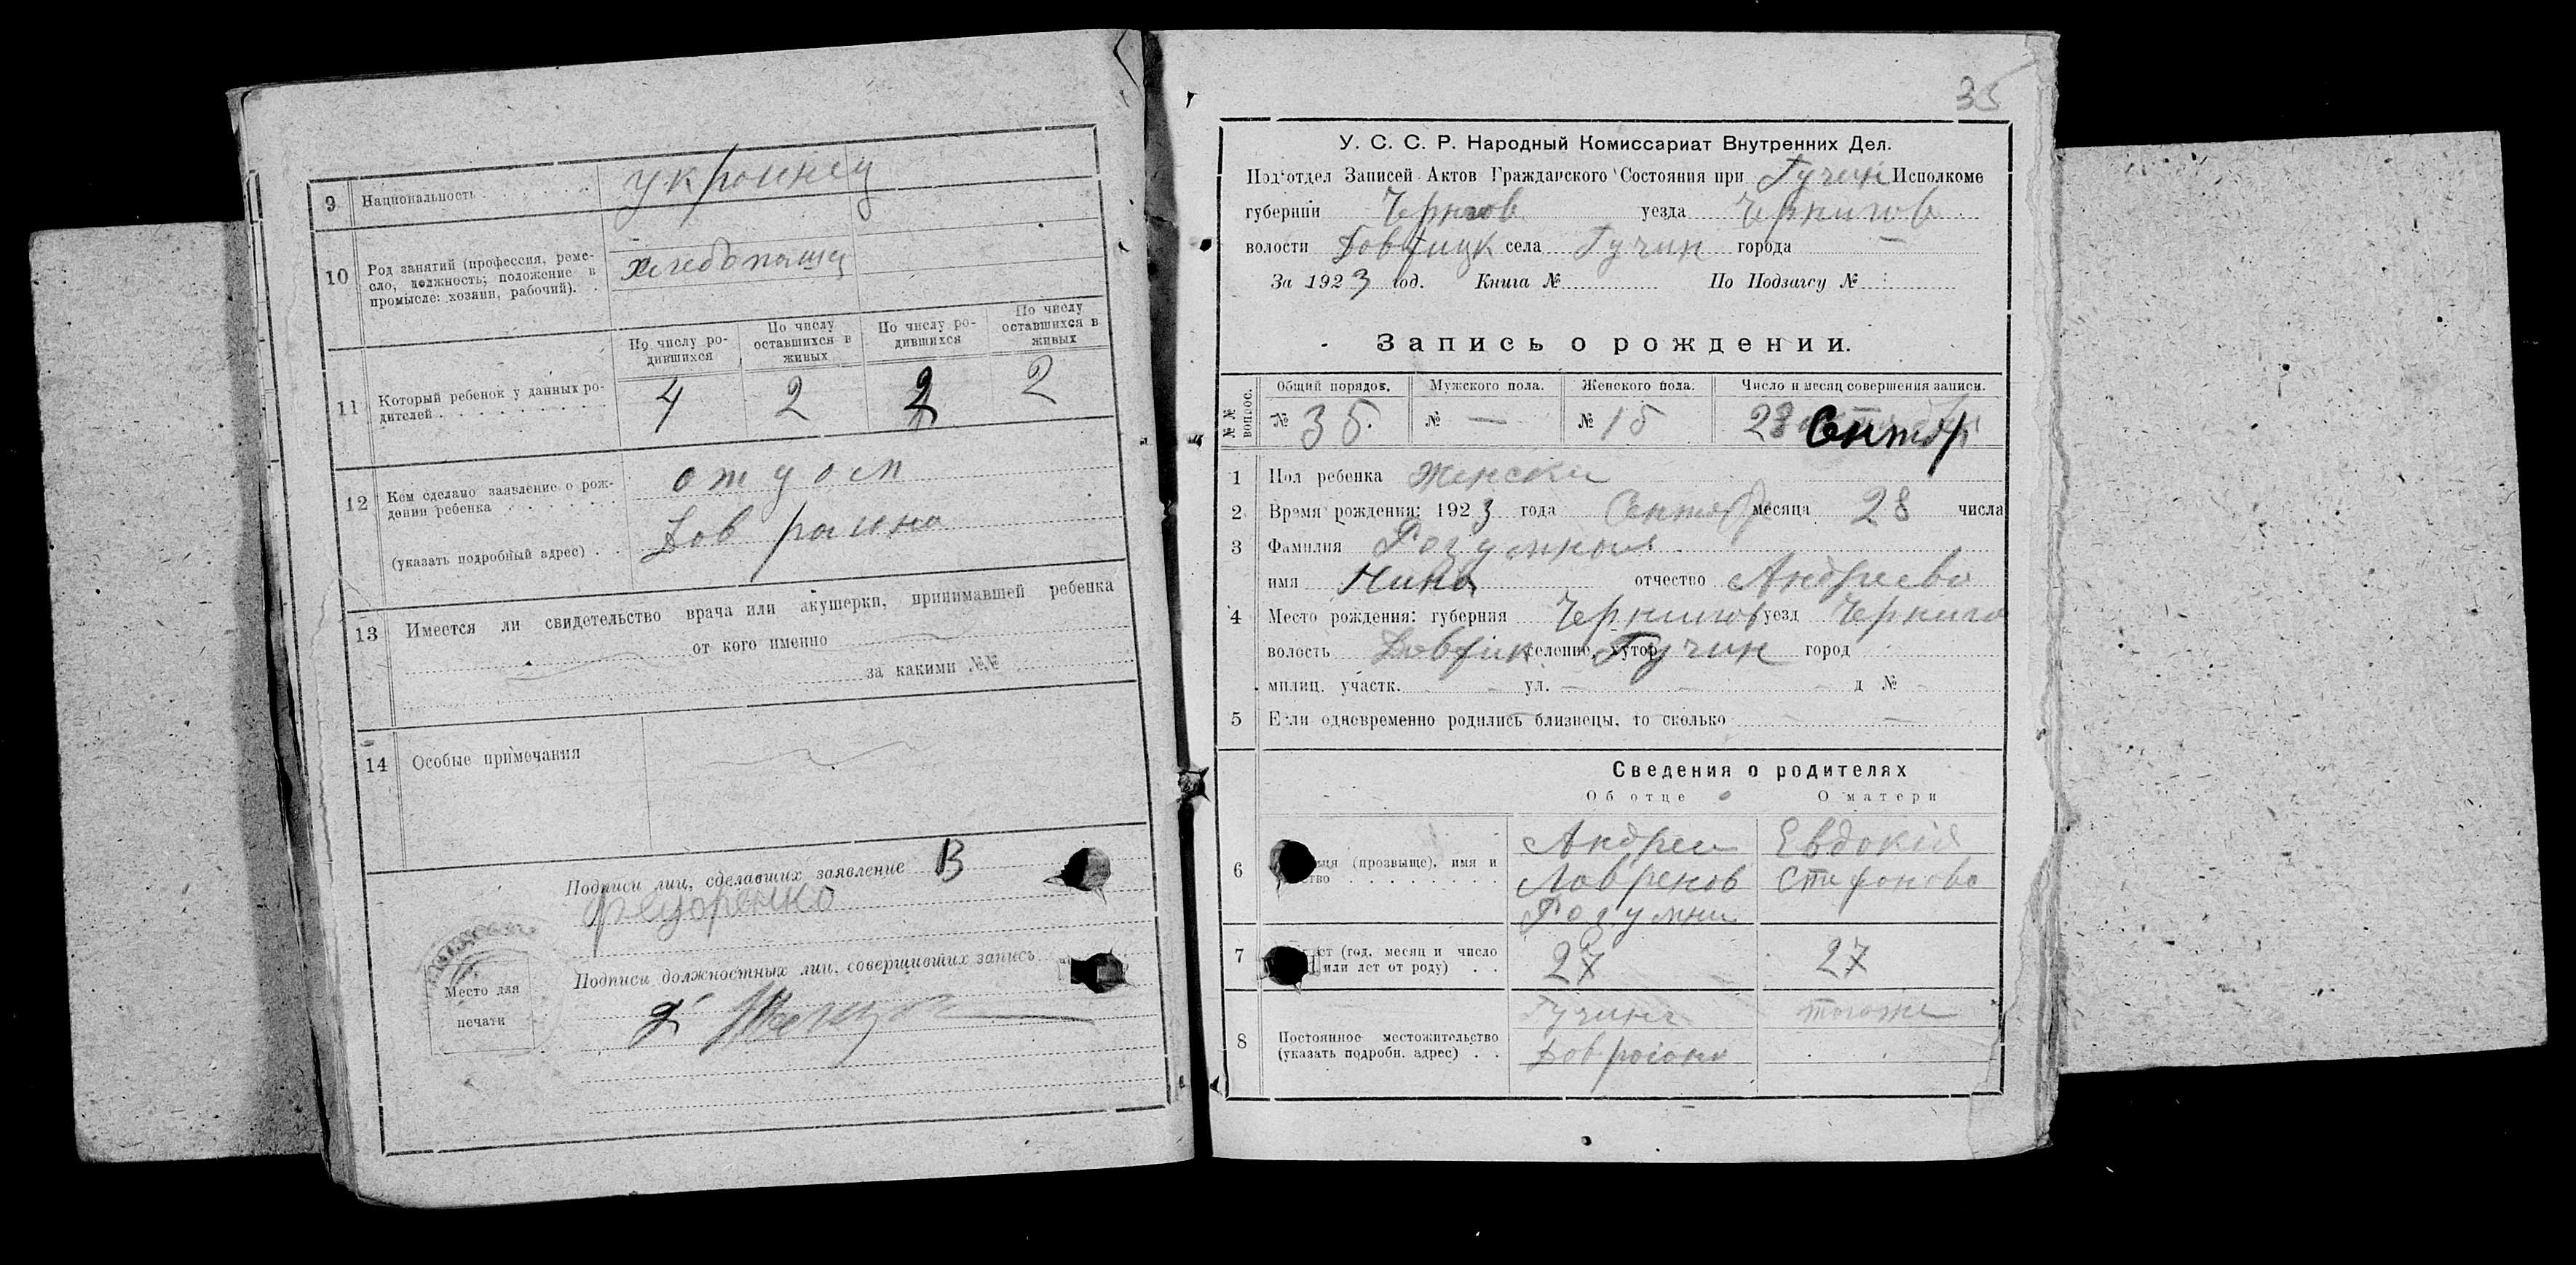 9 Национальность украинец
10 Род занятий (профессия, реме-
сло, должность; положение в
промысле: хозяин, рабочий). хлебопашец
По числу ро-
дившихся
По числу
оставшихся в
живых
По числу ро-
дившихся
По числу
оставшихся в
живых
11 Который ребенок у данных ро-
дителей 4 2 2 2
12 Кем сделано заявление о рож-
дении ребенка отцом
(указать подробный адрес) Дов раина
13 Имеется ли свидетельство врача или акушерки, принимавшей ребенка
от кого именно
за какими №№
14 Особые примечания
Подписи лиц, сделавших заявление В
Федоренко
Подписи должностных лиц, совершивших запись
Место для
печати
35
У. С. С. Р. Народный Комиссариат Внутренних Дел.
Подотдел Записей Актов Гражданского Состояния при Гучин Исполкоме
губернии Чернигов уезда Чернигов
волости Довжицк села Гучин города —
За 1923 год. Книга № По Подзагсу №
Запись о рождении.
№№ вопрос.
Общий порядок. Мужского пола. Женского пола. Число и месяц совершения записи.
№ 35. № — № 15 28 Сентяр
1 Пол ребенка Женски
2 Время рождения: 1923 года Сентябр месяца 28 числа
3 Фамилия Розумная
имя Нина отчество Андреева
4 Место рождения: губерния Чернигов уезд Черниго
волость Довжик селение, хутор Гучин город
милиц. участк. — ул. — д № -
5 Если одновременно родились близнецы, то сколько —
Сведения о родителях
Об отце О матери
6 (прозвище), имя и
Андреи Евдокія
Лавренов Стефанова
Розумни
7 (год, месяц и число
или лет от роду) 27 27
8 Постоянное местожительство
(указать подробн. адрес)
Гучин тогоже
Дов раіона